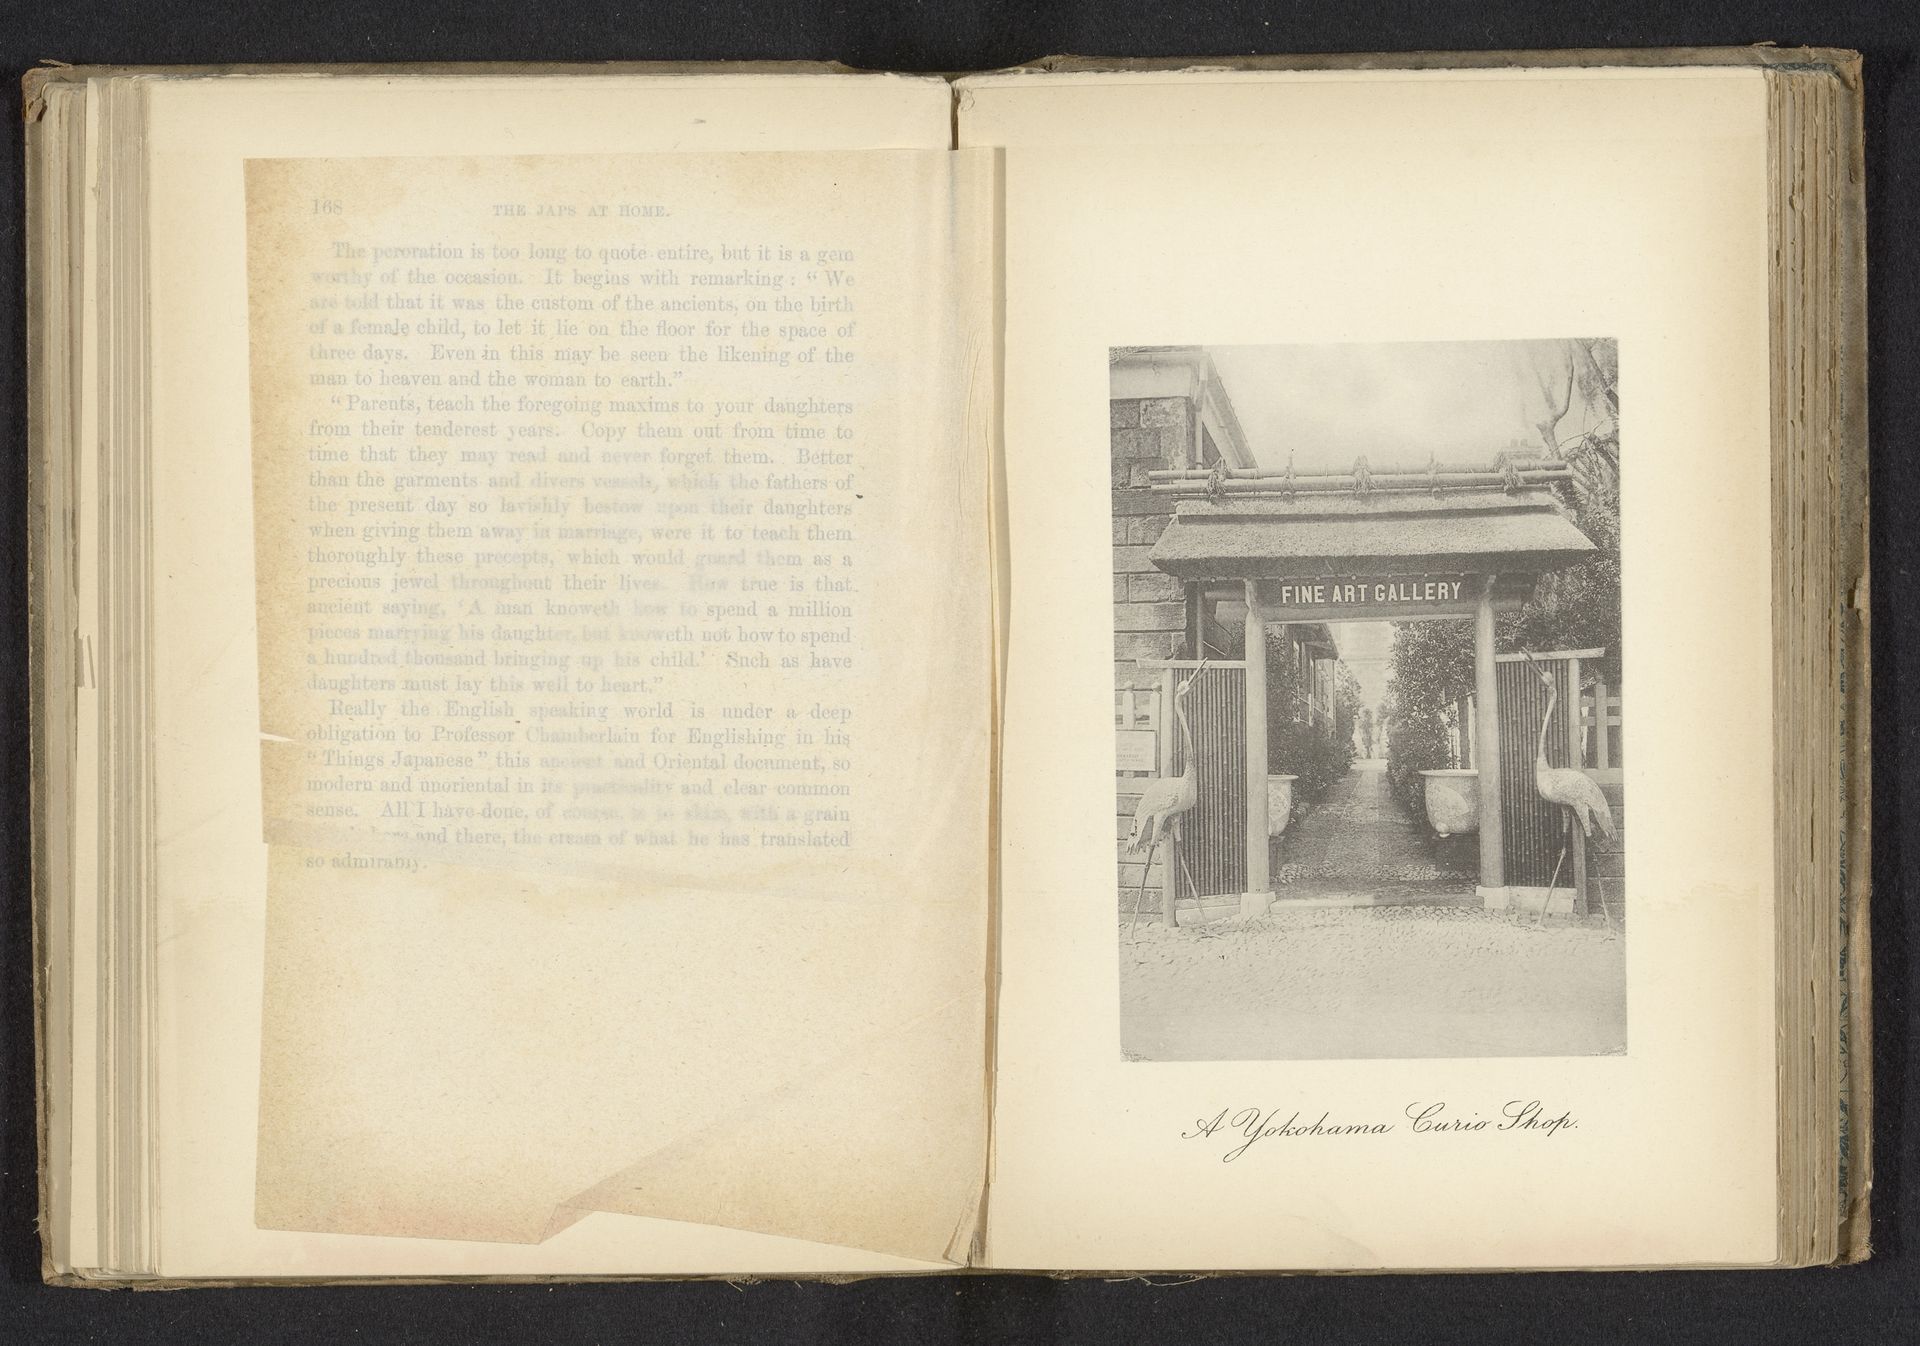 168 THE JAPS AT HOME.
The peroration is too long to quote entire, but it is a gem
worthy of the occasion. It begins with remarking : “ We
are told that it was the custom of the ancients, on the birth
of a female child, to let it lie on the floor for the space of
three days. Even in this may be seen the likening of the
man to heaven and the woman to earth.”
“ Parents, teach the foregoing maxims to your daughters
from their tenderest years. Copy them out from time to
time that they may read and never forget them. Better
than the garments and divers vessels, which the fathers of
the present day so lavishly bestow upon their daughters
when giving them away in marriage, were it to teach them
thoroughly these precepts, which would guard them as a
precious jewel throughout their lives. How true is that
ancient saying, ‘ A man knoweth how to spend a million
pieces marrying his daughter, but knoweth not how to spend
a hundred thousand bringing up his child.’ Such as have
daughters must lay this well to heart.”
Really the English speaking world is under a deep
obligation to Professor Chamberlain for Englishing in his
“ Things Japanese ” this ancient and Oriental document, so
modern and unoriental in its practicality and clear common
sense. All I have done, of course, is to skim, with a grain
here and there, the cream of what he has translated
so admirably.
FINE ART GALLERY
A Yokohama Curio Shop.